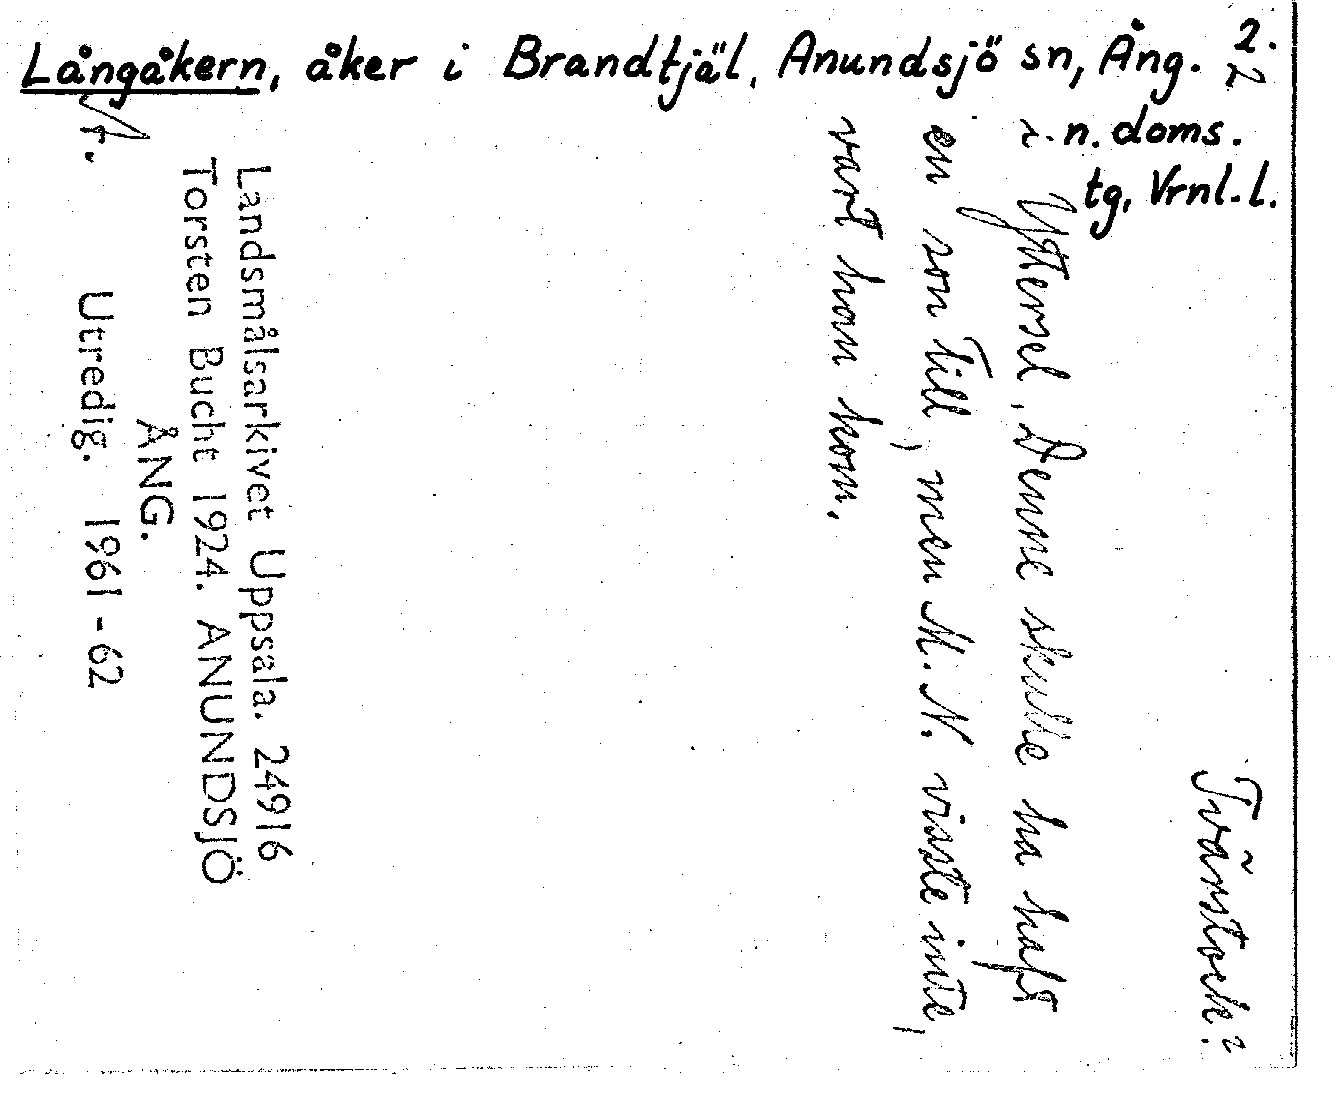 Långåkern, åker i Brandtjäl, Anundsjö sn, Ång. 2.
n. doms.
tg, Vrnl.l.
Tvärstock?
2
i Yttersel. Denne skulle ha haft
en son till, men M. N. visste inte,
vart han kom.
Landsmålsarkivet Uppsala. 24916
Torsten Bucht 1924. ANUNDSJÖ
ÅNG.
Utredig. 1961-62